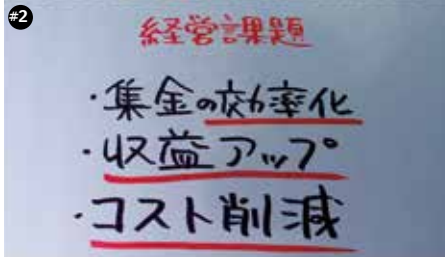 #2
経営課題
・集金の効率化
・収益アップ
・コスト削減